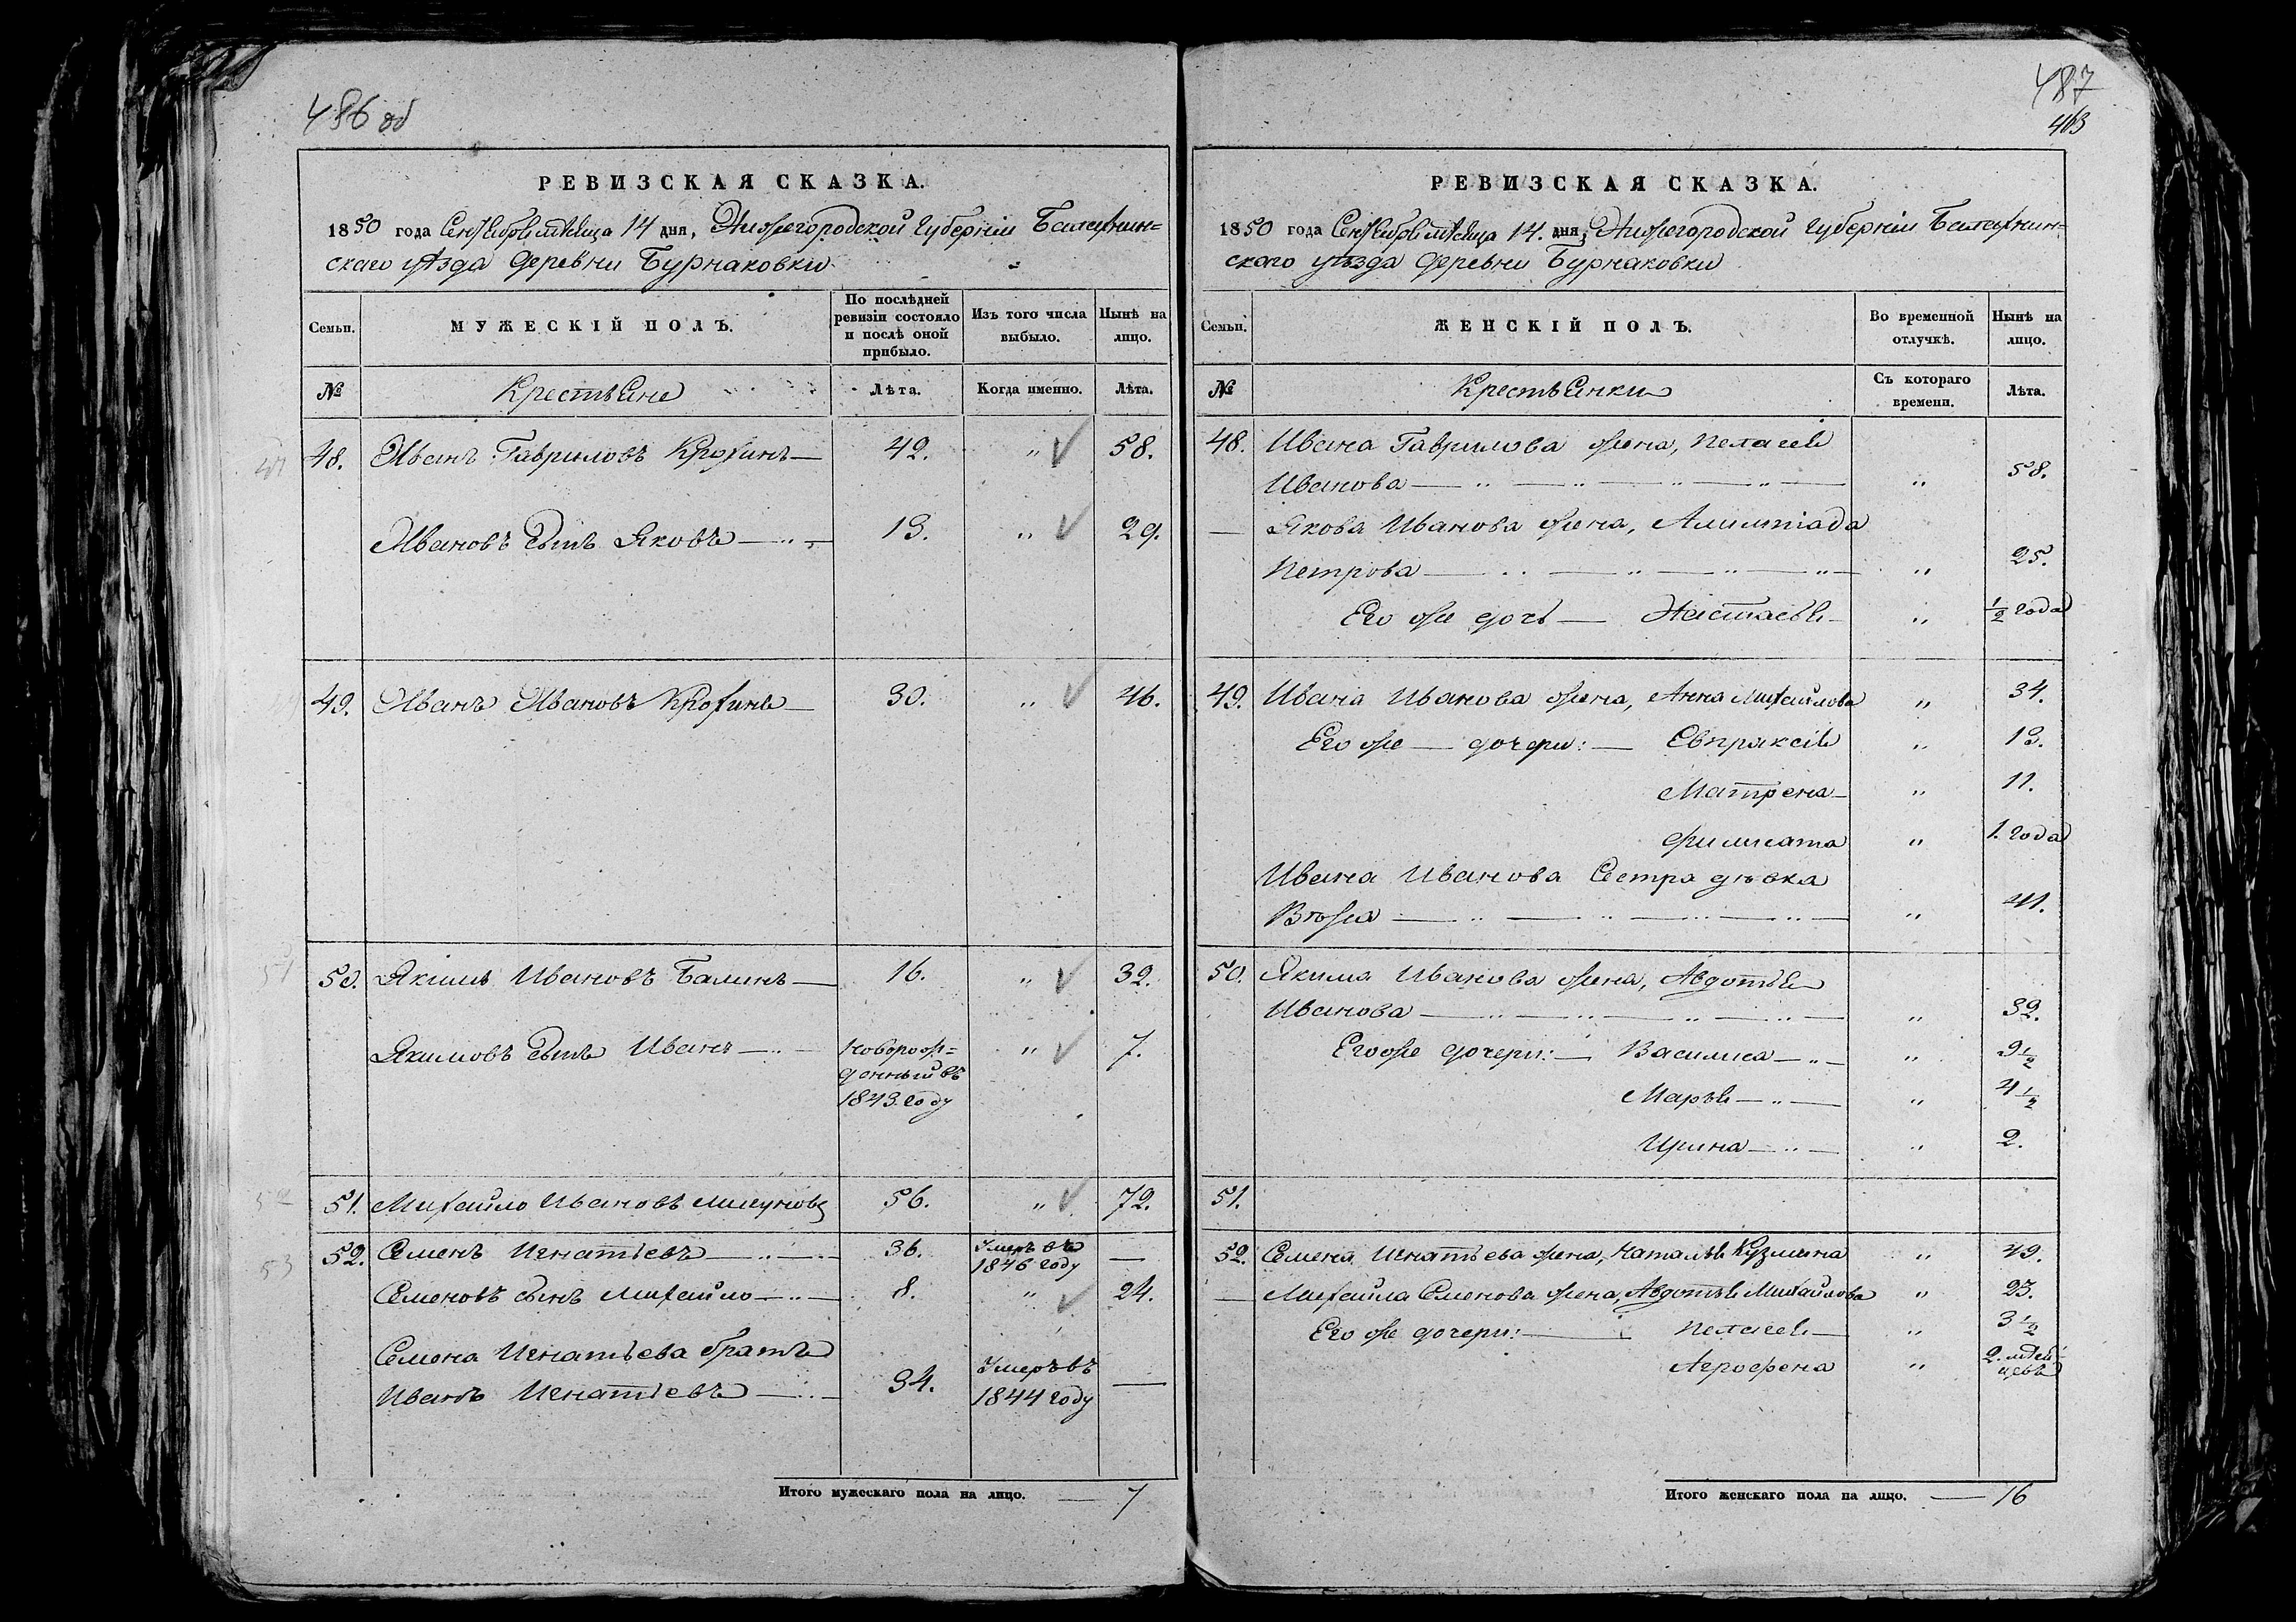 486 об
РЕВИЗСКАЯ СКАЗКА.
1850 года Сентября мѣсяца 14 дня, Нижегородской Губерніи Балахнин=
скаго уѣзда деревни Бурнаковки
Семьи.
МУЖЕСКІЙ ПОЛЪ.
По послѣдней ревизіи состояло и послѣ оной прибыло.
Изъ того числа выбыло.
Нынѣ на лицо.
№
Крестьяне
Лѣта.
Когда именно.
Лѣта.
48. Иванъ Гавриловъ Крохинъ — 42. " 58.
Ивановъ сынъ Яковъ — 13. " 29.
49. Иванъ Ивановъ Крохинъ — 30. " 46.
50. Якимъ Ивановъ Балинъ — 16. " 32.
Якимовъ сынъ Иванъ — новорож= " 7.
денный въ
1843 году
51. Михайло Ивановъ 56. " 72.
52. Семенъ Игнатьевъ — 36. Умеръ въ —
1846 году
Семеновъ сынъ Михайло — 8. " 24.
Семена Игнатьева братъ
Иванъ Игнатьевъ — 34. Умеръ въ —
1844 году
Итого мужескаго пола на лицо. — 7
487
463
РЕВИЗСКАЯ СКАЗКА.
1850 года Сентября мѣсяца 14. дня, Нижегородской Губерніи Балахнин-
скаго уѣзда деревни Бурнаковки
Семьи.
ЖЕНСКІЙ ПОЛЪ.
Во временной отлучкѣ.
Нынѣ на лицо.
№
Крестьянки
Съ котораго времени.
Лѣта.
48. Ивана Гаврилова жена, Пелагея
Иванова — " 58.
— Якова Иванова жена, Алимпіада
Петрова — " 25.
Его же дочь — Настасья " ½ года
49. Ивана Иванова жена, Анна Михайлова " 34.
Его же — дочери: — Евпраксія " 13.
Матрена " 11.
Филисата " 1. года
Ивана Иванова Сестра дѣвка
" 41.
50. Якима Иванова жена, Авдотья
Иванова — " 32.
Его же дочери: — Василиса — " 9½
Марья — " 4½
Ирина — " 2.
51.
52. Семена Игнатьева жена, Наталья Кузмина " 49.
— Михайла Семенова жена, Авдотья Михайлова " 23.
Его же дочери: — Пелагея — " 3½
Агрофена " 2. мѣся=
цевъ
Итого женскаго пола на лицо. — 16